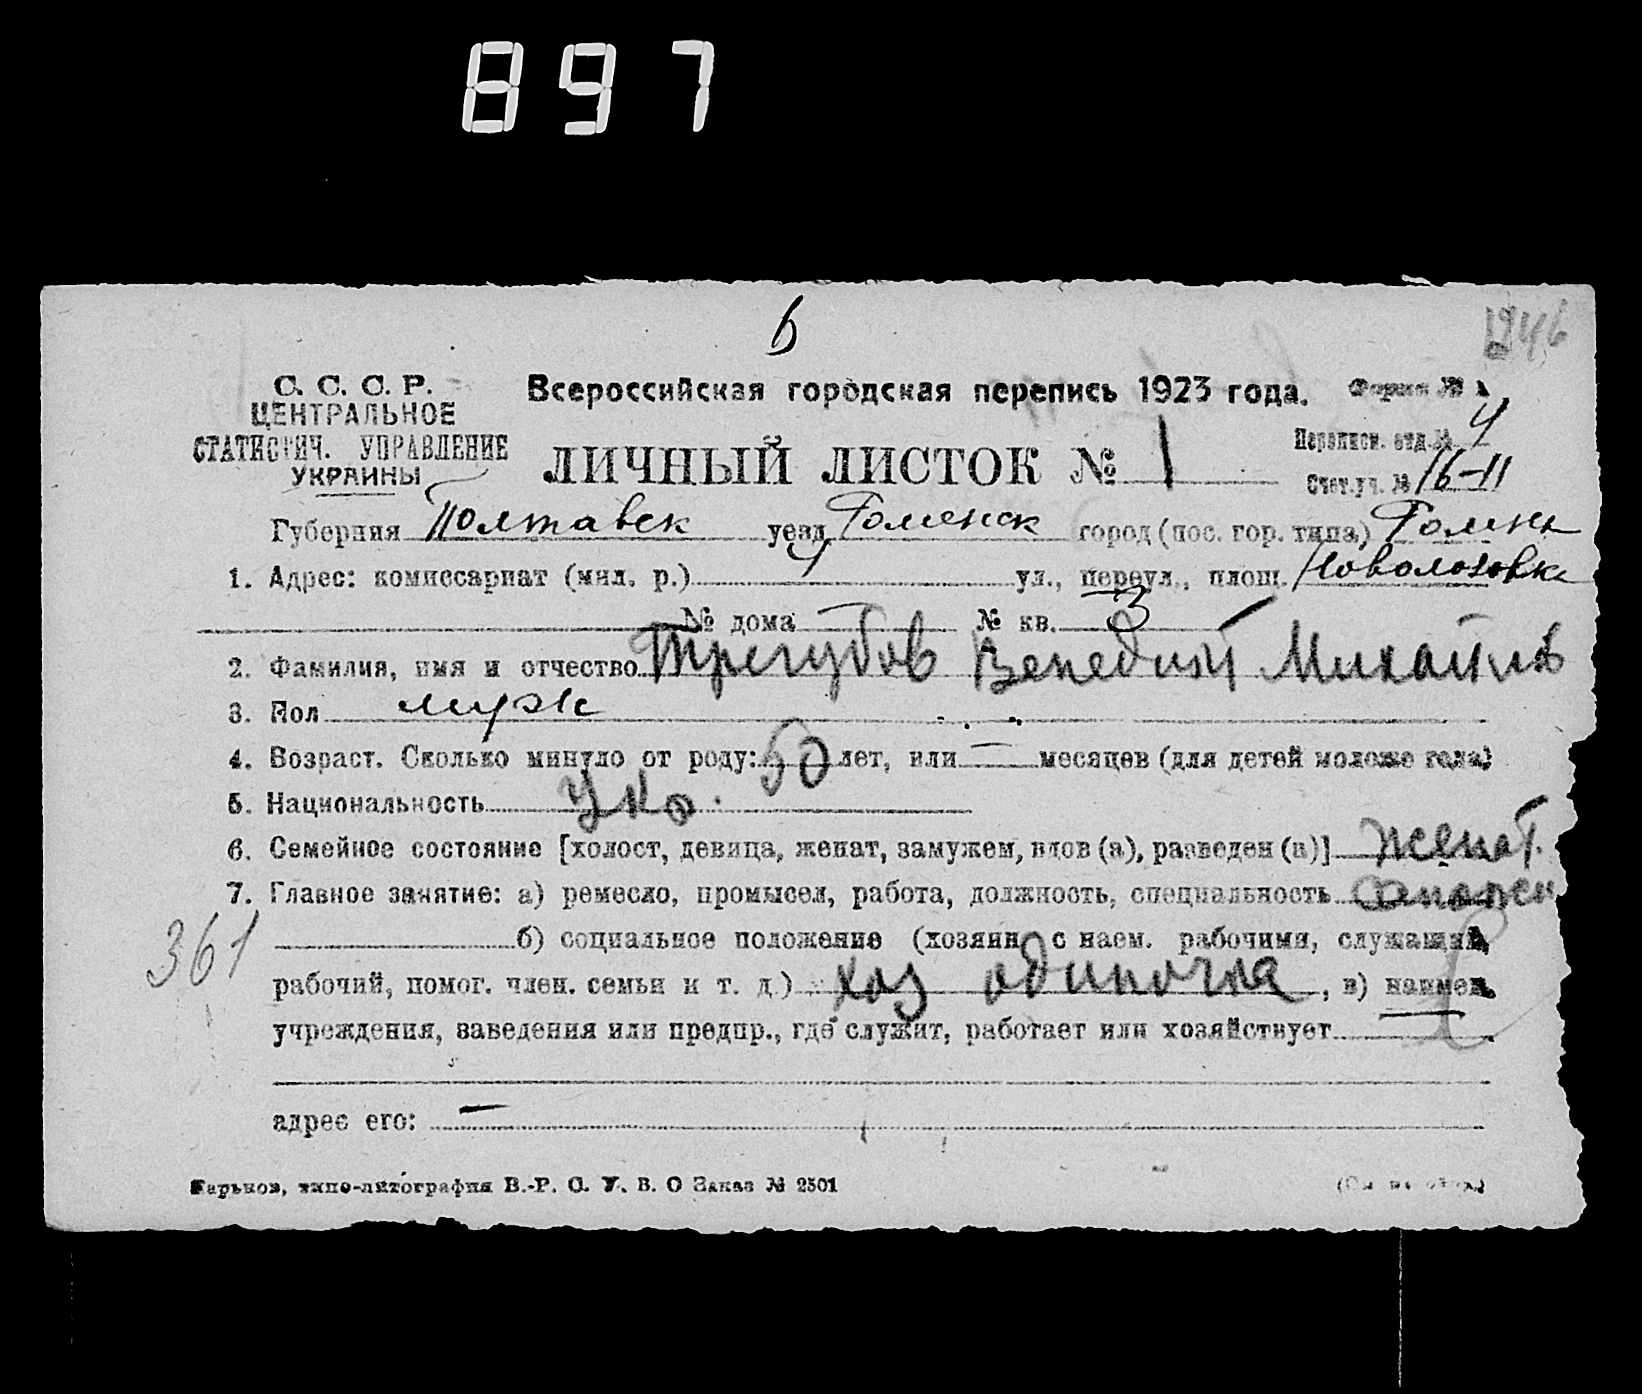 897
6
1246
С. С. С. Р.
ЦЕНТРАЛЬНОЕ
СТАТИСТИЧ. УПРАВЛЕНИЕ
УКРАИНЫ
Всероссийская городская перепись 1923 года.
Форма №
ЛИЧНЫЙ ЛИСТОК № 1
Переписн. отд. № 4
Счет. уч. № 16-11
Губерния Полтавск уезд Роменск город (пос. гор. типа) Ромны
1. Адрес: комиссариат (мил. р.) 4 ул., переул., площ.
№ дома — № кв. 3
2. Фамилия, имя и отчество Трегубов Венедикт Михайлов
3. Пол муж
4. Возраст. Сколько минуло от роду: 50 лет, или — месяцев (для детей моложе года)
5. Национальность Укр.
6. Семейное состояние [холост, девица, женат, замужем, вдов (а), разведен (а)] женат.
7. Главное занятие: а) ремесло, промысел, работа, должность, специальность сапожн
361
б) социальное положение (хозяин с наем. рабочими, служащий,
рабочий, помог. член. семьи и т. д.) хоз одиночка, в) наимен.
учреждения, заведения или предпр., где служит, работает или хозяйствует
адрес его: —
Харьков, типо-литография В.-Р. С. У. В. О Заказ № 2501